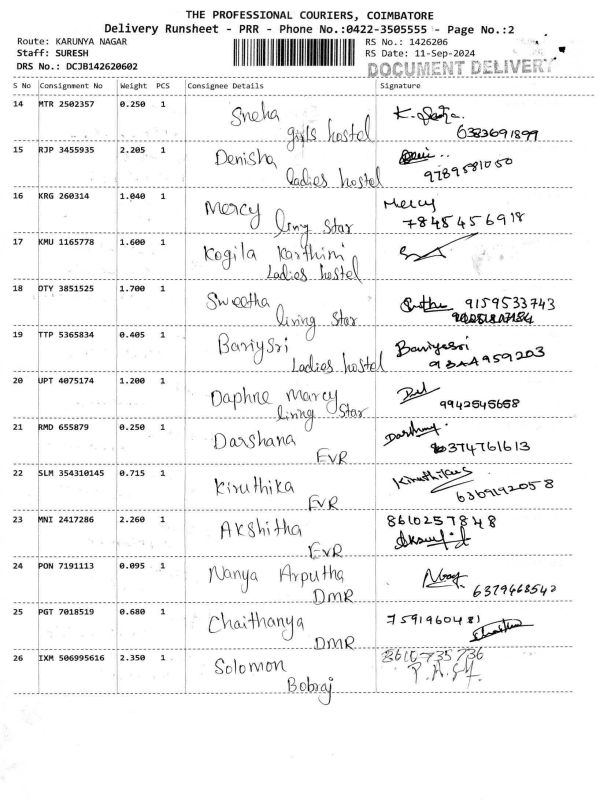 THE PROFESSIONAL COURIERS, COIMBATORE
Delivery Runsheet - PRR - Phone No.:0422-3505555 - Page No.:2
Route: KARUNYA NAGAR RS No.: 1426206
Staff: SURESH RS Date: 11-Sep-2024
DRS No.: DCJB142620602 DOCUMENT DELIVERY
S No Consignment No Weight PCS Consignee Details Signature
14 MTR 2502357 0.250 1 Sneha
girls hostel 6383691899
15 RJP 3455935 2.205 1 Denisha
ladies hostel 9789581050
16 KRG 260314 1.040 1 Mercy Mercy
ling Star 7845456918
17 KMU 1165778 1.600 1 Kogila Karthini
Ladies hostel
18 DTY 3851525 1.700 1 Swetha 9159533743
living Star
19 TTP 5365834 0.405 1 Bariysri Bariyasri
Ladies hostel 9344959203
20 UPT 4075174 1.200 1 Daphne Marcy
living Star 9942545658
21 RMD 655879 0.250 1 Darshana Darshany
EVR 6374761613
22 SLM 354310145 0.715 1 Kiruthika
EVR 6369192058
23 MNI 2417286 2.260 1 Akshitha 8610257848
EVR
24 PON 7191113 0.095 1 Nanya Arputha
DMR 6379468542
25 PGT 7018519 0.680 1 Chaithanya 7591960481
DMR
26 IXM 506995616 2.350 1 Solomon 8610735736
Bobraj